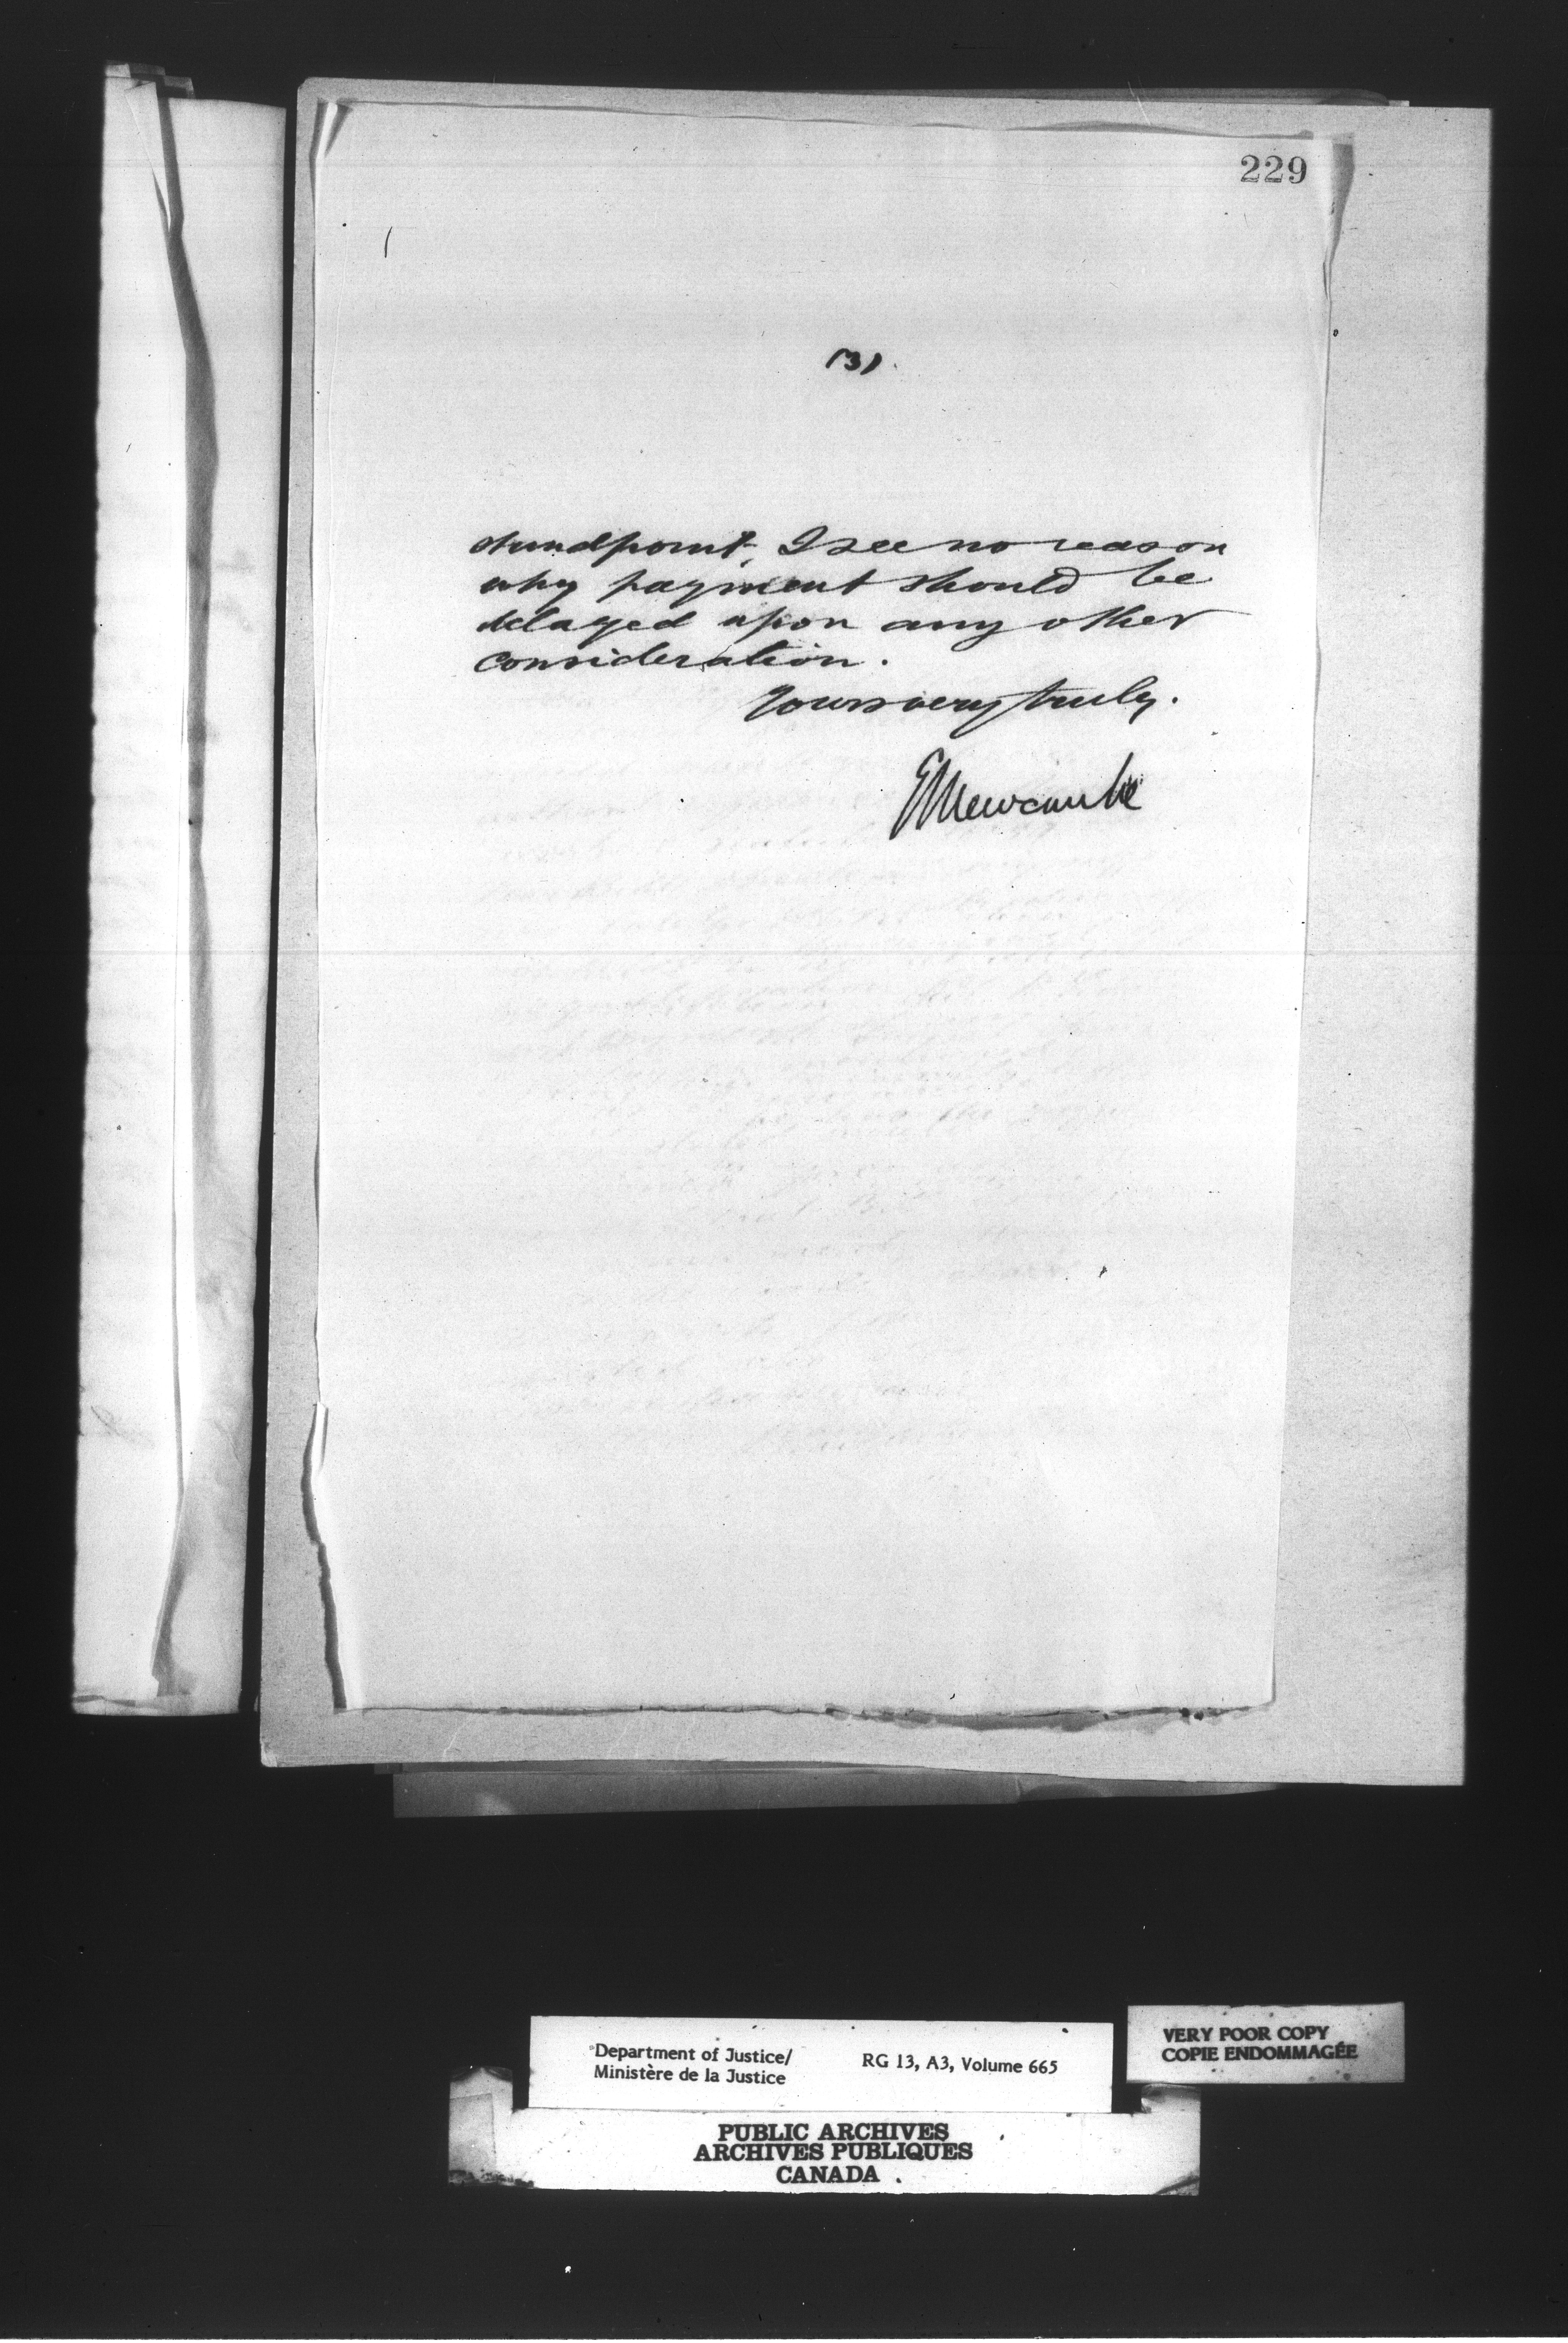 229
(3).
standpoint, I see no reason
why payment should be
delayed upon any other
consideration.
Yours very truly.
E Newcombe
Department of Justice/
Ministère de la Justice
RG 13, A3, Volume 665
VERY POOR COPY
COPIE ENDOMMAGÉE
PUBLIC ARCHIVES
ARCHIVES PUBLIQUES
CANADA